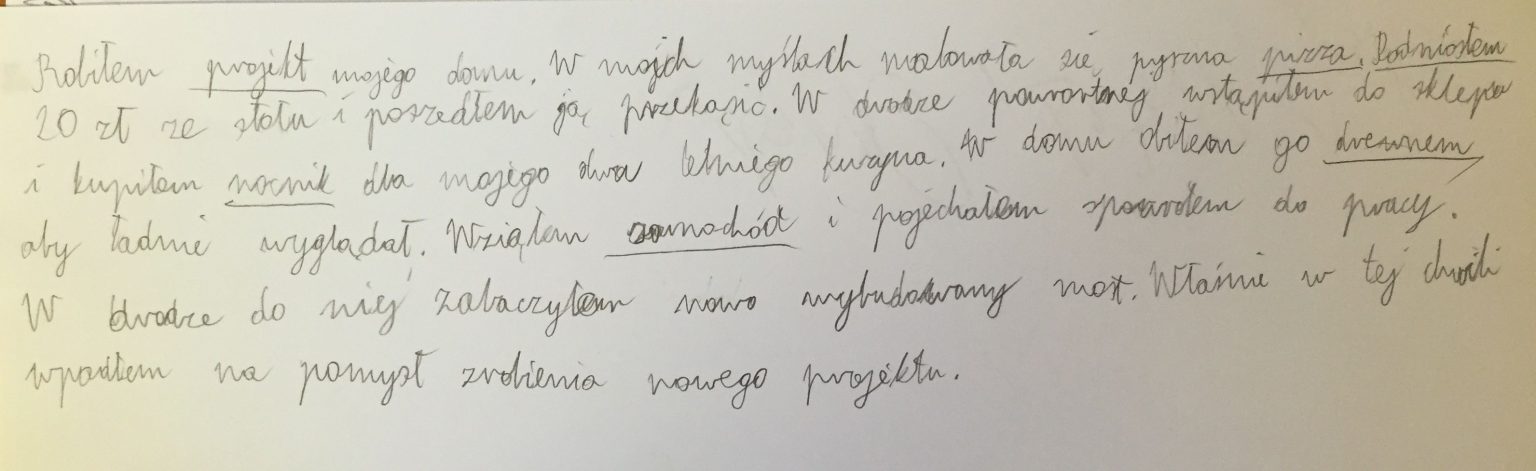 Robiłem projekt mojego domu. W mojch myślach malowała się pyszna pizza. Podniosłem
20 zł ze stołu i poszedłem ją przekąsić. W drodze powrotnej wstąpiłem do sklepu
i kupiłem nocnik dla mojego dwu letniego kuzyna. W domu obiłem go drewnem,
aby ładnie wyglądał. Wziąłem samochód i pojechałem spowrotem do pracy.
W drodze do niej zobaczyłem nowo wybudowany most. Właśnie w tej chwili
wpadłem na pomysł zrobienia nowego projektu.